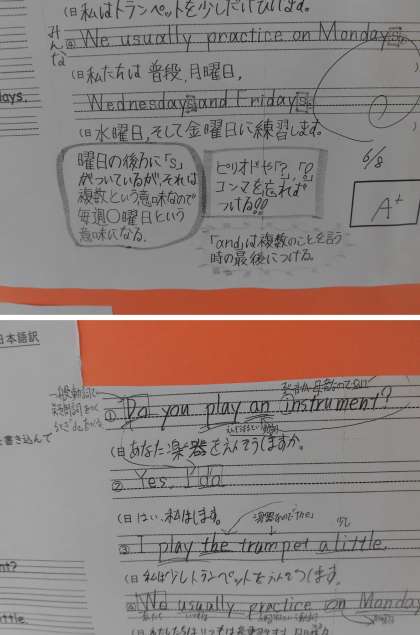 (日 私はトランペットを少しだけひけます。
みんな
④ We usually practice on Mondays,
(日 私たちは 普段、月曜日、
Wednesdays and Fridays.
(日 水曜日、そして金曜日に練習します。
曜日の後ろに「s」
がついているが、それは
複数という意味なので
毎週〇曜日という
意味になる。
ピリオドや「?」「!」
コンマを忘れず
つける!!
6/8
A+
「and」は複数のことを言う
時の最後につける。
days.
日本語訳
① Do you play an instrument?
を書き込んで
(日 あなた楽器をえんそうしますか。
② Yes, I do
(日 はい、私はします。
楽器なので「the」
少し
③ I play the trumpet a little.
nt?
(日 私は少しトランペットをえんそうします。
④ We usually practice on Monday
ttle.